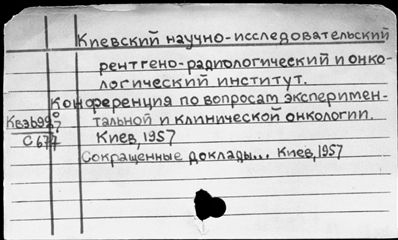 Киевский научно-исследовательский
рентгено-радиологический и онко-
логический институт.
Конференция по вопросам эксперимен-
тальной и клинической онкологии.
Киев, 1957
С677
Сокращенные доклады... Киев, 1957